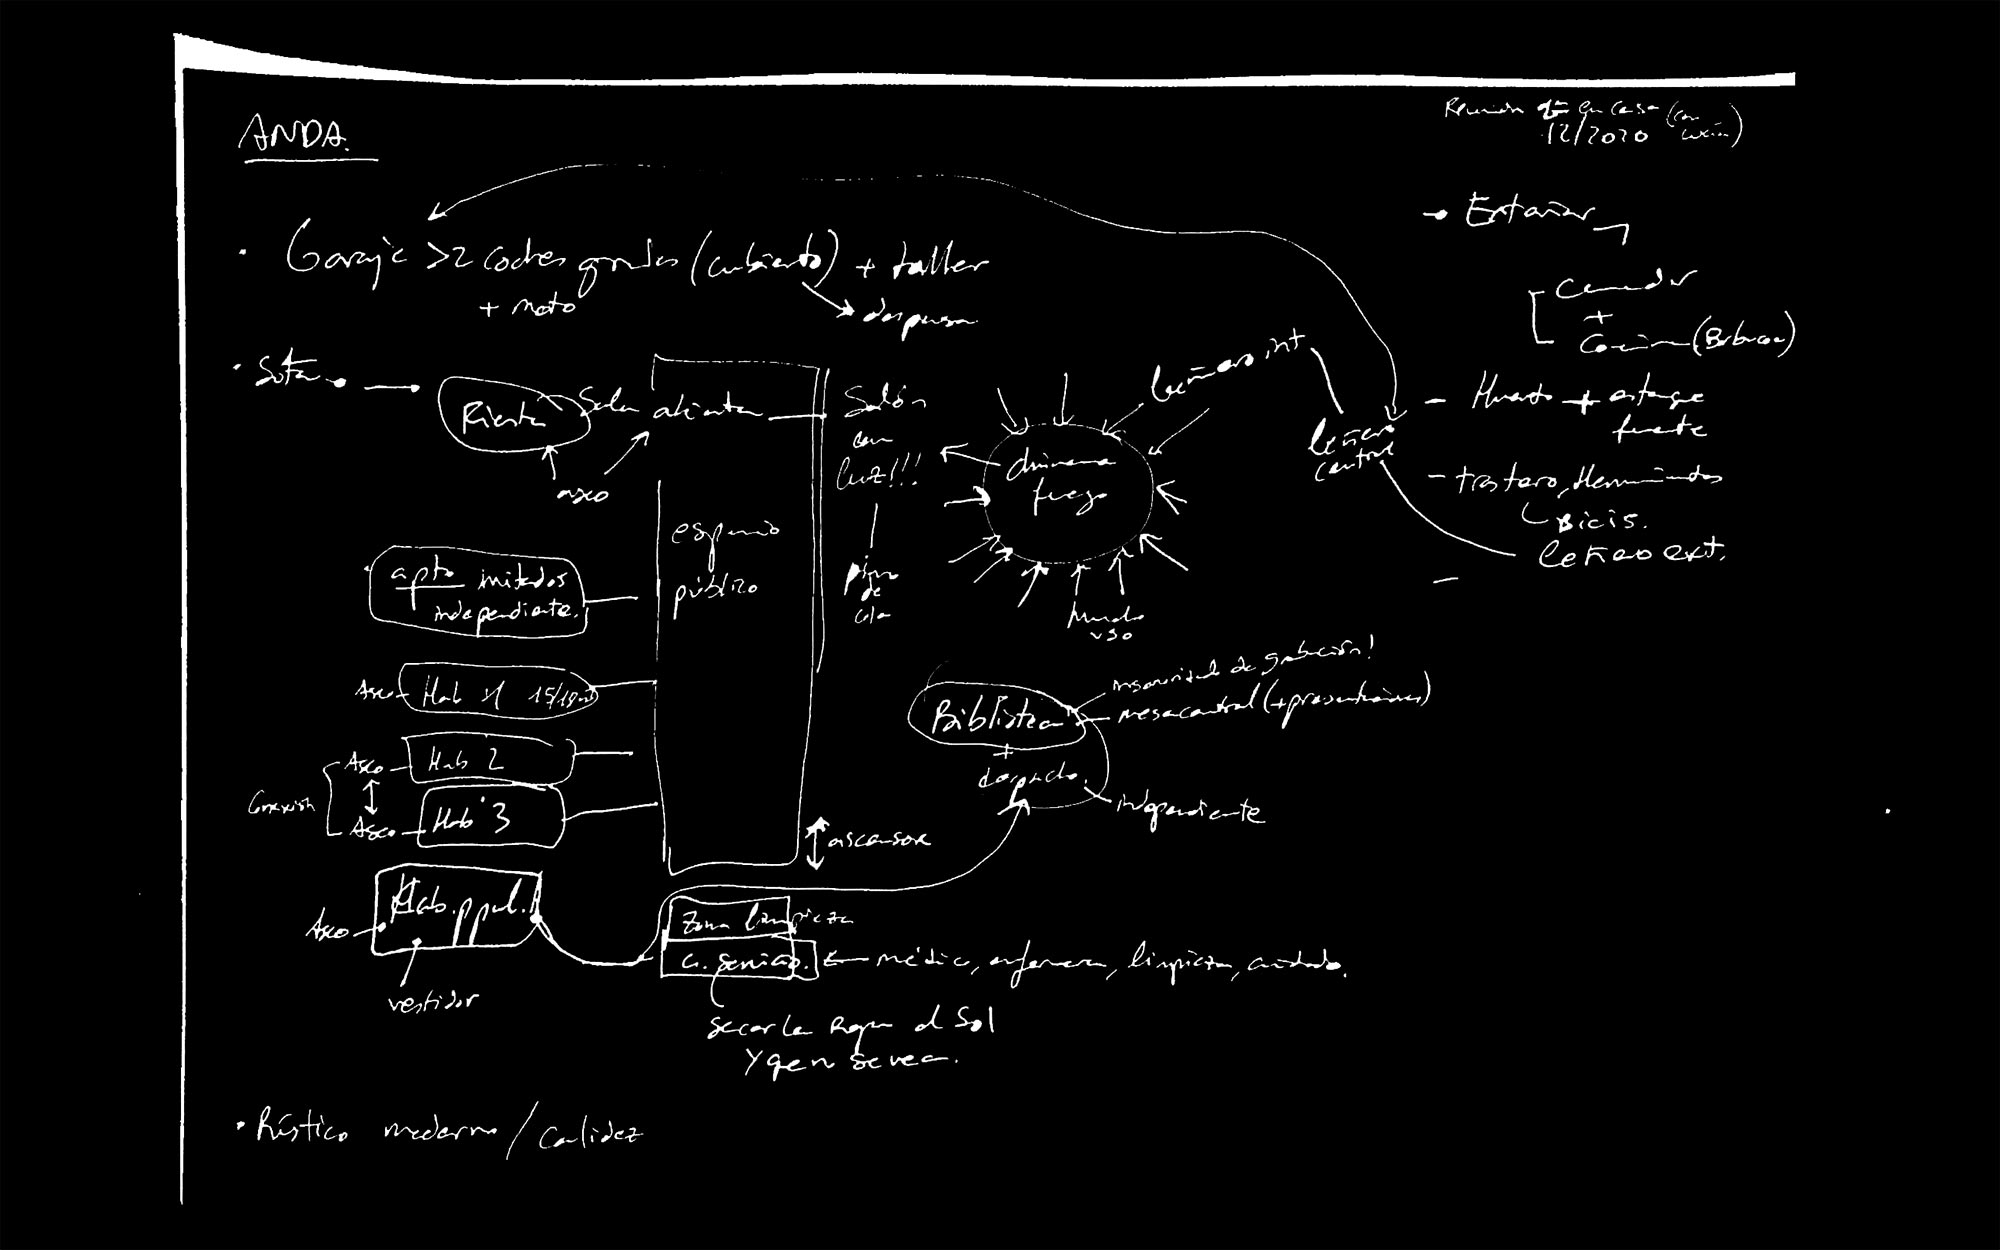 ANDA.
Reunión en casa (con
12/2020
· Garaje >2 coches grandes (cubierto) + taller
+ moto
despensa
→ Exterior
Comedor
+
Cocina (Barbacoa)
- Huerto + estanque
fuente
- trastero, Herramientas
Bicis.
leñero ext.
leñero int
leñero
central
· Sótano →
Fiesta
Sala abierta
aseo
Salón
con
luz!!!
piano
de
cola
chimenea
fuego
Mucho
uso
espacio
público
apto invitados
independiente.
Aseo
Hab 1 15/18m
Aseo
Hab 2
Conexión
Aseo
Hab 3
ascensor
Biblioteca
+
despacho.
insonorizado de grabación!
mesa central (+ presentaciones)
independiente
Aseo
Hab. ppal.
vestidor
Zona limpieza
C. servicio.
médico, enfermera, limpieza, cuidado.
Secar la Ropa al Sol
y que no se vea.
· Rústico moderno / Calidez